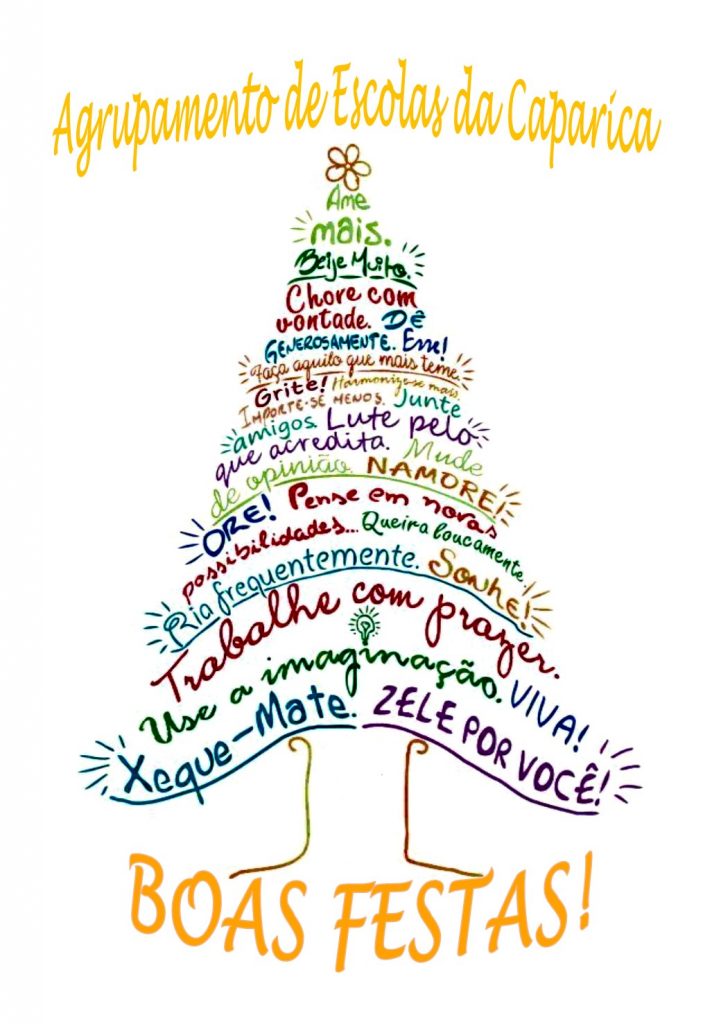 Agrupamento de Escolas da Caparica
Ame
mais.
Beije Muito.
Chore com
vontade. Dê
GENEROSAMENTE. Erre!
Faça aquilo que mais teme.
Grite! Harmonize-se mais.
IMPORTE-SE MENOS. Junte
amigos. Lute pelo
que acredita. Mude
de opinião. NAMORE!
ORE! Pense em novas
possibilidades... Queira loucamente.
Ria frequentemente. Sonhe!
Trabalhe com prazer.
Use a imaginação. VIVA!
Xeque-Mate. ZELE POR VOCÊ!
BOAS FESTAS!